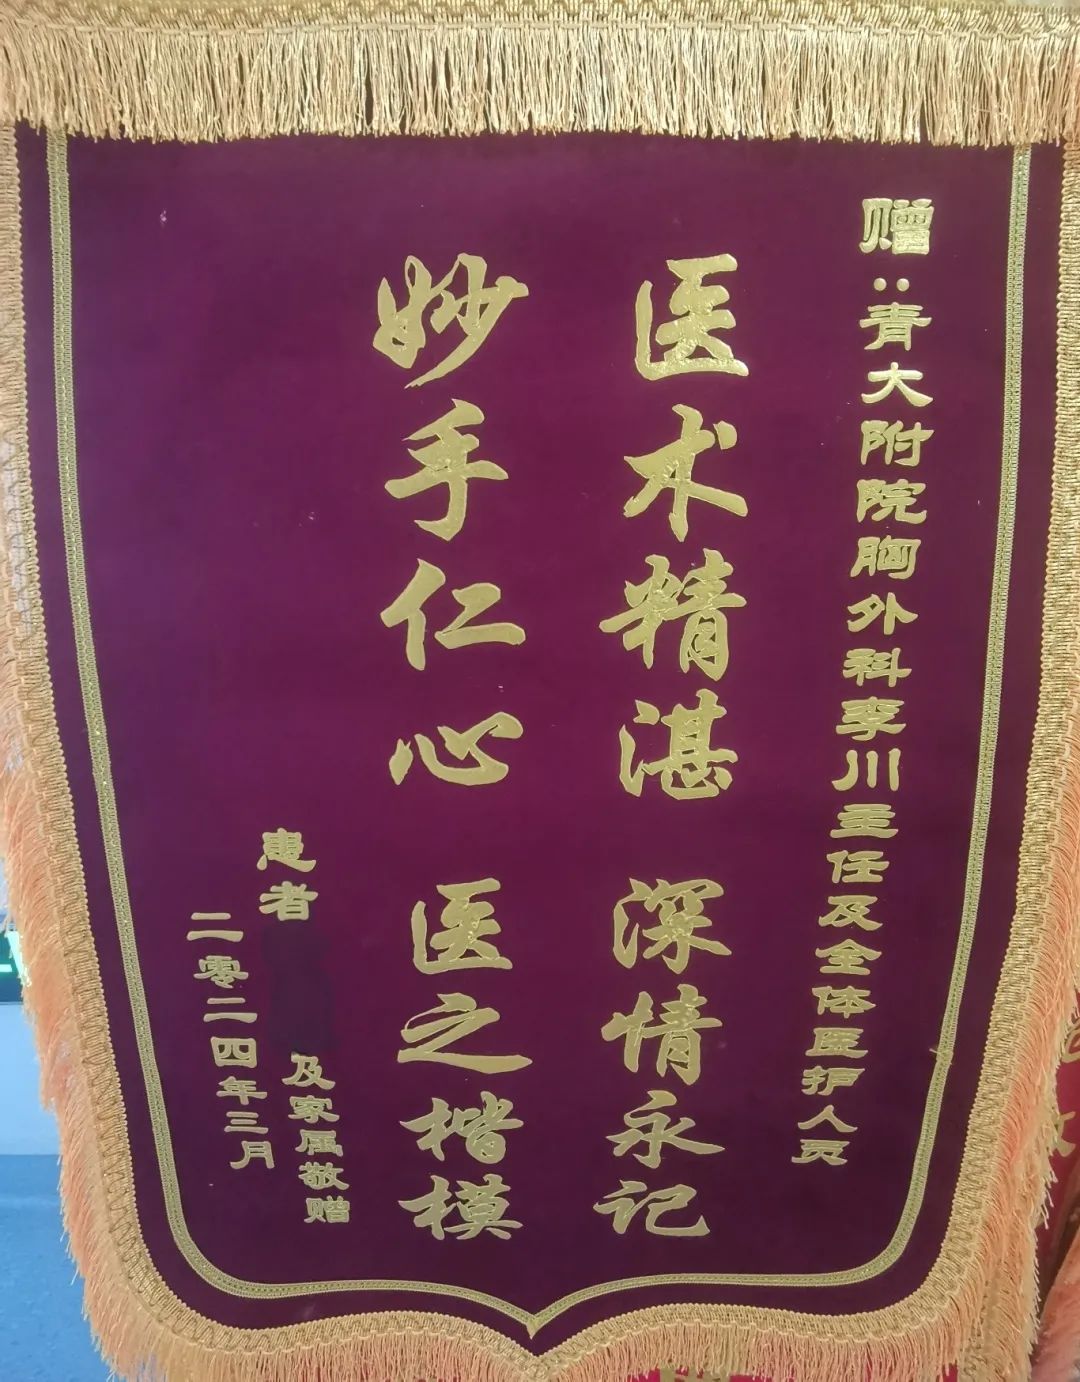 赠:青大附院胸外科李川主任及全体医护人员
医术精湛 深情永记
妙手仁心 医之楷模
患者 及家属敬赠
二零二四年三月